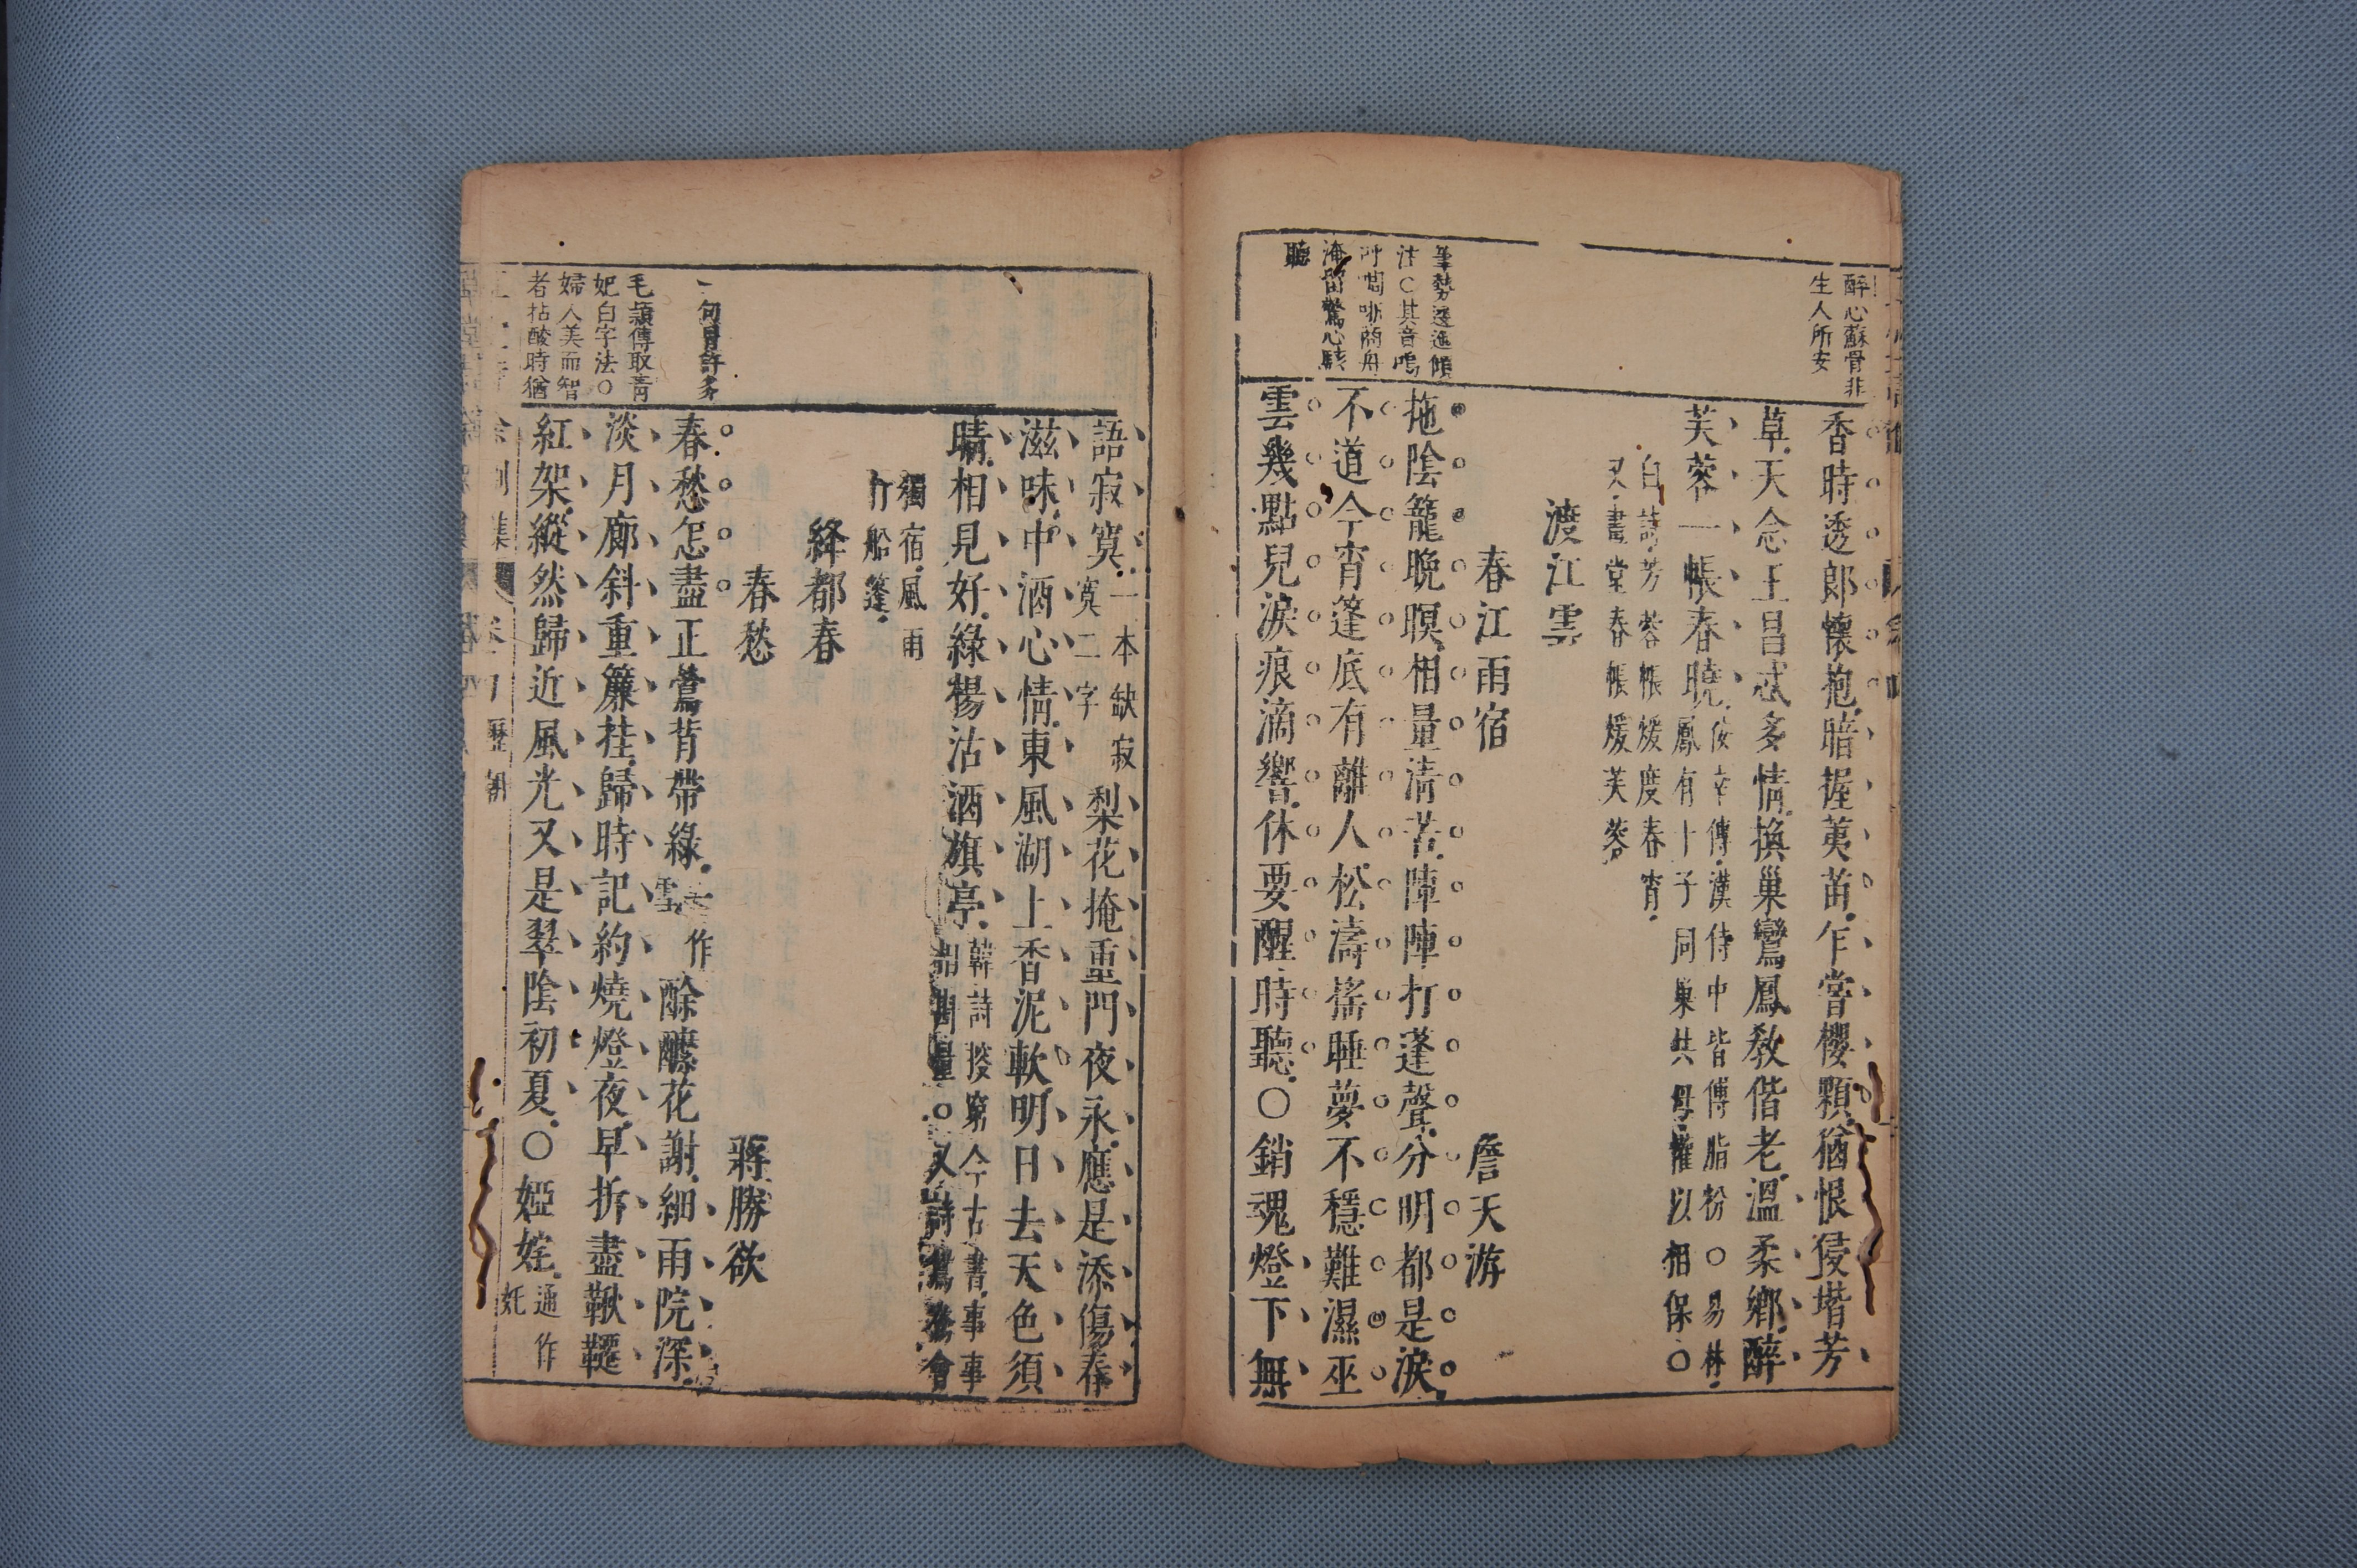 醉心蘇骨非
生人所安
香時透郎懷抱暗握荑苗乍嘗櫻顆猶恨侵堦芳
草天念王昌忒多情換巢鸞鳳教偕老溫柔鄉醉
芙蓉一帳春曉
佞幸傳漢侍中皆傅脂粉○易林
鳳有十子同巢共母懽以相保○
白詩芙蓉帳煖度春宵
又書堂春帳煖芙蓉
渡江雲
春江雨宿 詹天游
筆勢邊進傾
注○其音嗚
淹留驚心駭
聽
拖陰籠晚暝相量清苦陣陣打蓬聲分明都是淚
不道今宵篷底有離人松濤搖睡夢不穩難濕巫
雲幾點兒淚痕滴響休要醒時聽○銷魂燈下無
語寂寞
一本缺寂
寞二字
梨花掩重門夜永應是添傷春
滋味中酒心情東風湖上香泥軟明日去天色須
晴相見好綠楊沽酒旗亭
韓詩挼窮今古書事事
相團量○又詩鴛鴦會
獨宿風雨
作船篷
絳都春
春愁 蔣勝欲
一句冒許多
毛穎傳取青
妃白字法○
婦人美而智
者拈酸時猶
春愁怎盡正鶯背帶綠
去作
雪
酴醾花謝細雨院深
淡月廊斜重簾挂歸時記約燒燈夜早拆盡鞦韆
紅架縱然歸近風光又是翠陰初夏○婭姹
通作
奼